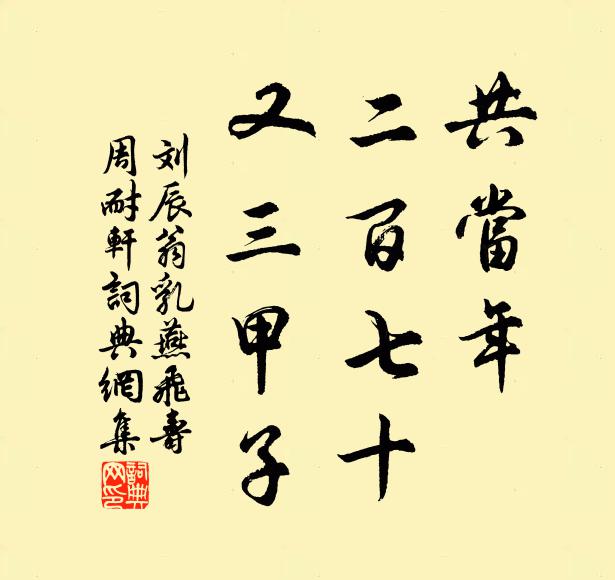 共當年
二百七十
又三甲子
刘辰翁乳燕飛壽
周耐軒詞典網集
詞典网印